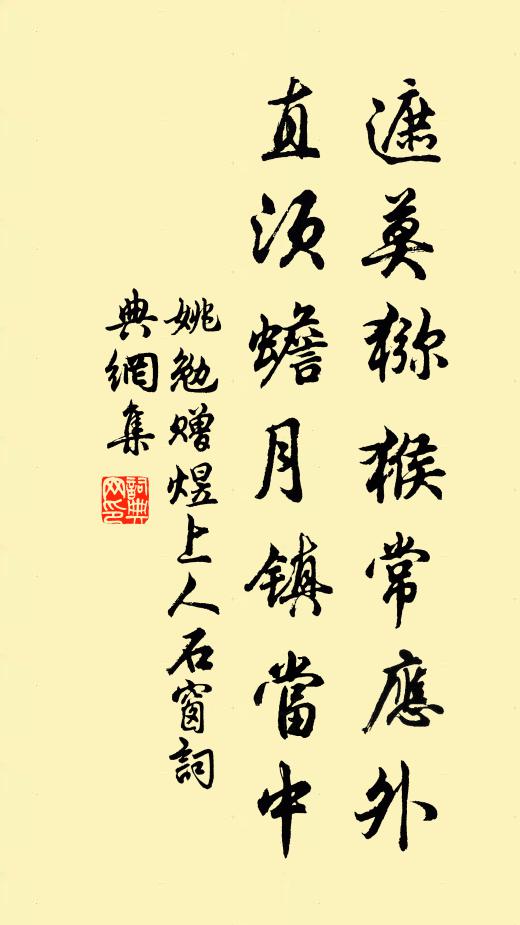 遮莫獼猴常應外
直須蟾月鎮當中
姚勉贈煜上人石窗詞
典網集
詞典網印